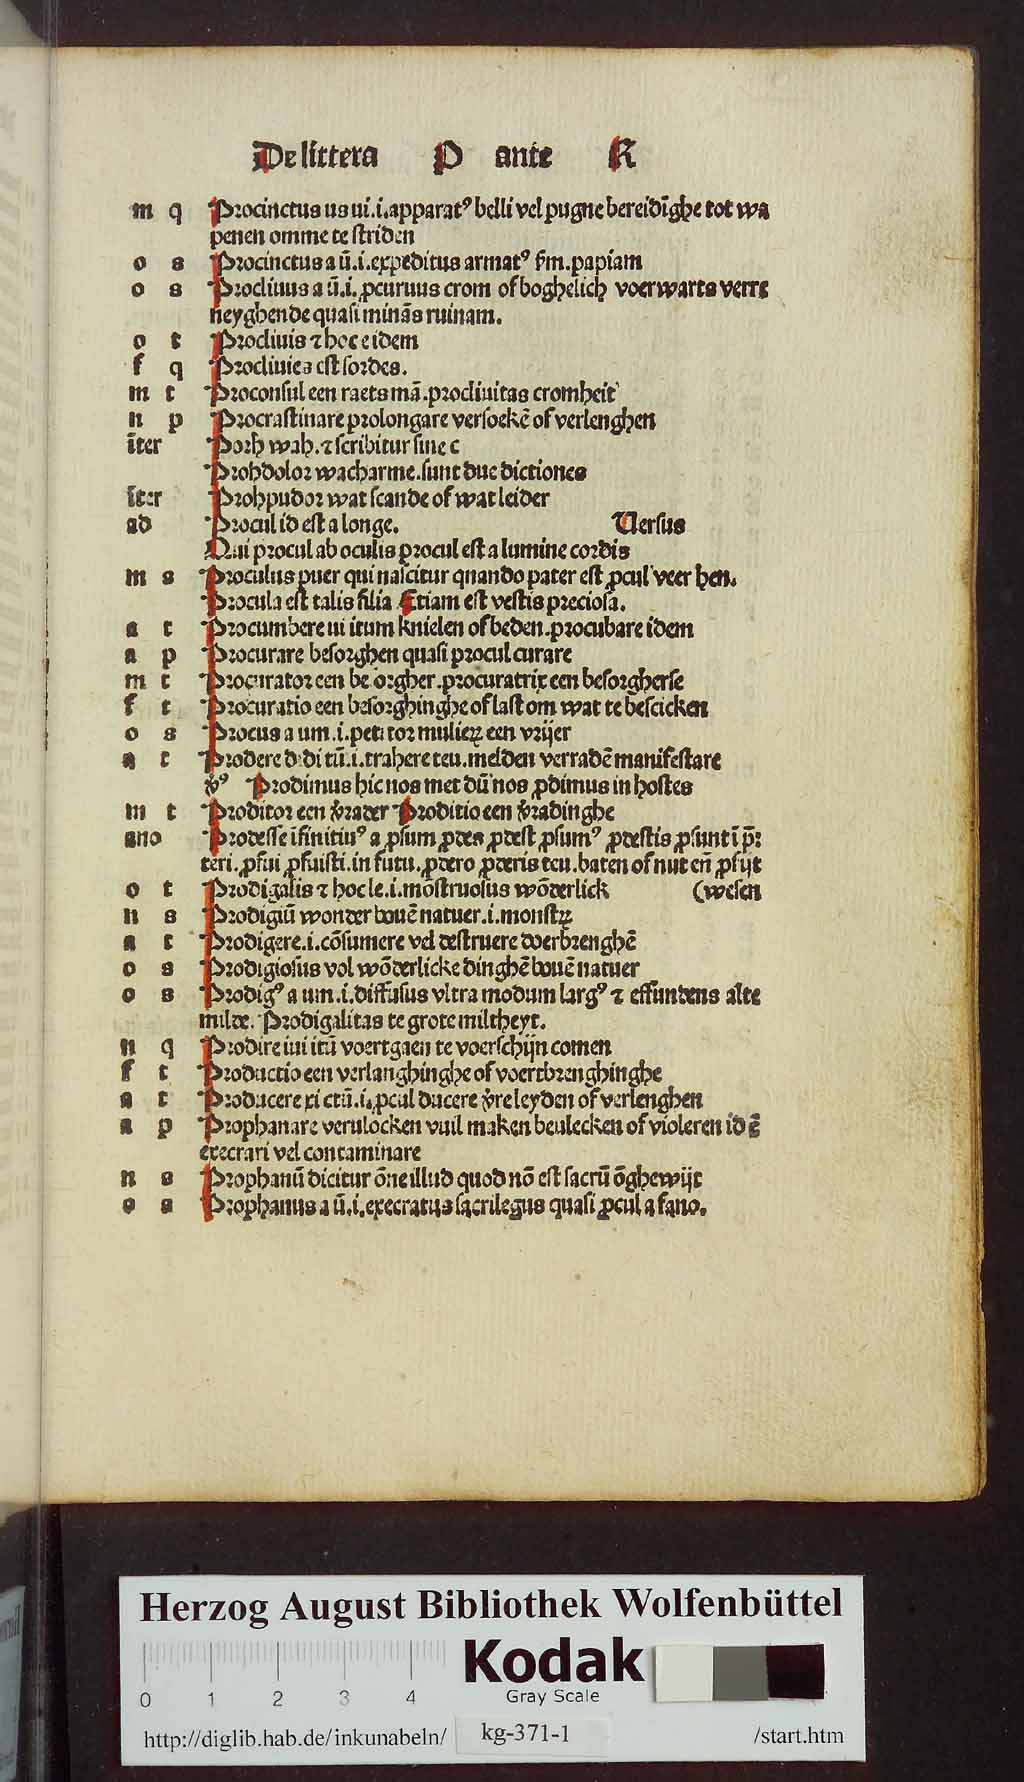 De littera P ante R
m q Procinctus us ui .i. apparatꝰ belli vel pugne bereidīghe tot wa
penen omme te striden
o s Procinctus a ū .i. expeditus armatꝰ ẜm. papiam
o s Procliuus a ū .i. ꝓcuruus crom of boghelich voerwarts verre
neyghende quasi minās ruinam.
o t Procliuis ⁊ hoc e idem
f q Procliuies est sordes.
m t Proconsul een raets mā. procliuitas cromheit
n p Procrastinare prolongare versoekē of verlenghen
īter Porh wah. ⁊ scribitur sine c
Prohdolor wacharme. sunt due dictiones
īter Prohpudor wat scande of wat leider
ad Procul id est a longe. Uersus
Qui procul ab oculis procul est a lumine cordis
m s Proculus puer qui nascitur quando pater est ꝓcul veer hen.
Procula est talis filia Etiam est vestis preciosa.
a t Procumbere ui itum knielen of beden. procubare idem
a p Procurare besorghen quasi procul curare
m t Procurator een be orgher. procuratrix een besorgherse
f t Procuratio een besorghinghe of last om wat te bescicken
o s Procus a um .i. petitor mulieꝝ een vrijer
a t Prodere didi tū .i. trahere teu. melden verradē manifestare
ꝟꝰ Prodimus hic nos met dū nos ꝓdimus in hostes
m t Proditor een v̄rader Proditio een v̄radinghe
ano Prodesse īfinitiuꝰ a ꝓsum ꝓdes ꝓdest ꝓsumꝰ ꝓdestis ꝓsunt ī p̄:
teri. ꝓfui ꝓfuisti. in futu. ꝓdero ꝓderis teu. baten of nut eñ ꝓfijt
o t Prodigalis ⁊ hoc le .i. mōstruosus wōderlick (wesen
n s Prodigiū wonder bouē natuer .i. monstꝝ
a t Prodigere .i. cōsumere vel destruere doerbrenghē
o s Prodigiosus vol wōderlicke dinghē bouē natuer
o s Prodigꝰ a um .i. diffusus vltra modum largꝰ ⁊ effundens alte
milde. Prodigalitas te grote miltheyt.
n q Prodire iui itū voertgaen te voerschijn comen
f t Productio een verlanghinghe of voertbrenghinghe
a t Producere xi ctū .i. ꝓcul ducere v̄re leyden of verlenghen
a p Prophanare verulocken vuil maken beulecken of violeren id ē
execrari vel contaminare
n s Prophanū dicitur ōne illud quod nō est sacrū ōghewijt
o s Prophanus a ū .i. execratus sacrilegus quasi ꝓcul a fano.
Herzog August Bibliothek Wolfenbüttel
Kodak
Gray Scale
0 1 2 3 4
http://diglib.hab.de/inkunabeln/ kg-371-1 /start.htm